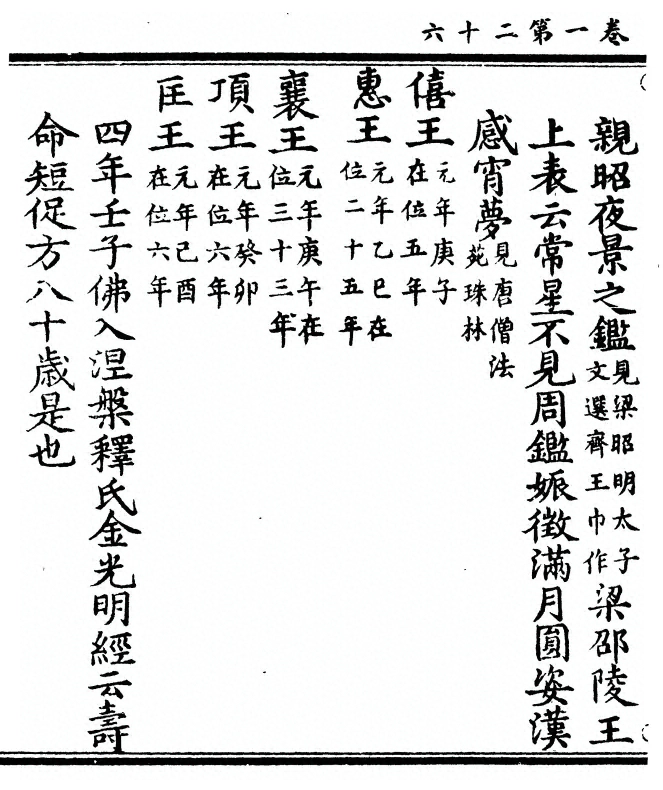 卷一第二十六
親昭夜景之鑑見梁昭明太子文選齊王巾作梁邵陵王
上表云常星不見周鑑娠徵滿月圓姿漢
感宵夢見唐僧法苑珠林
僖王元年庚子在位五年
惠王元年乙巳在位二十五年
襄王元年庚午在位三十三年
頃王元年癸卯在位六年
匡王元年己酉在位六年
四年壬子佛入涅槃釋氏金光明經云壽
命短促方八十歲是也